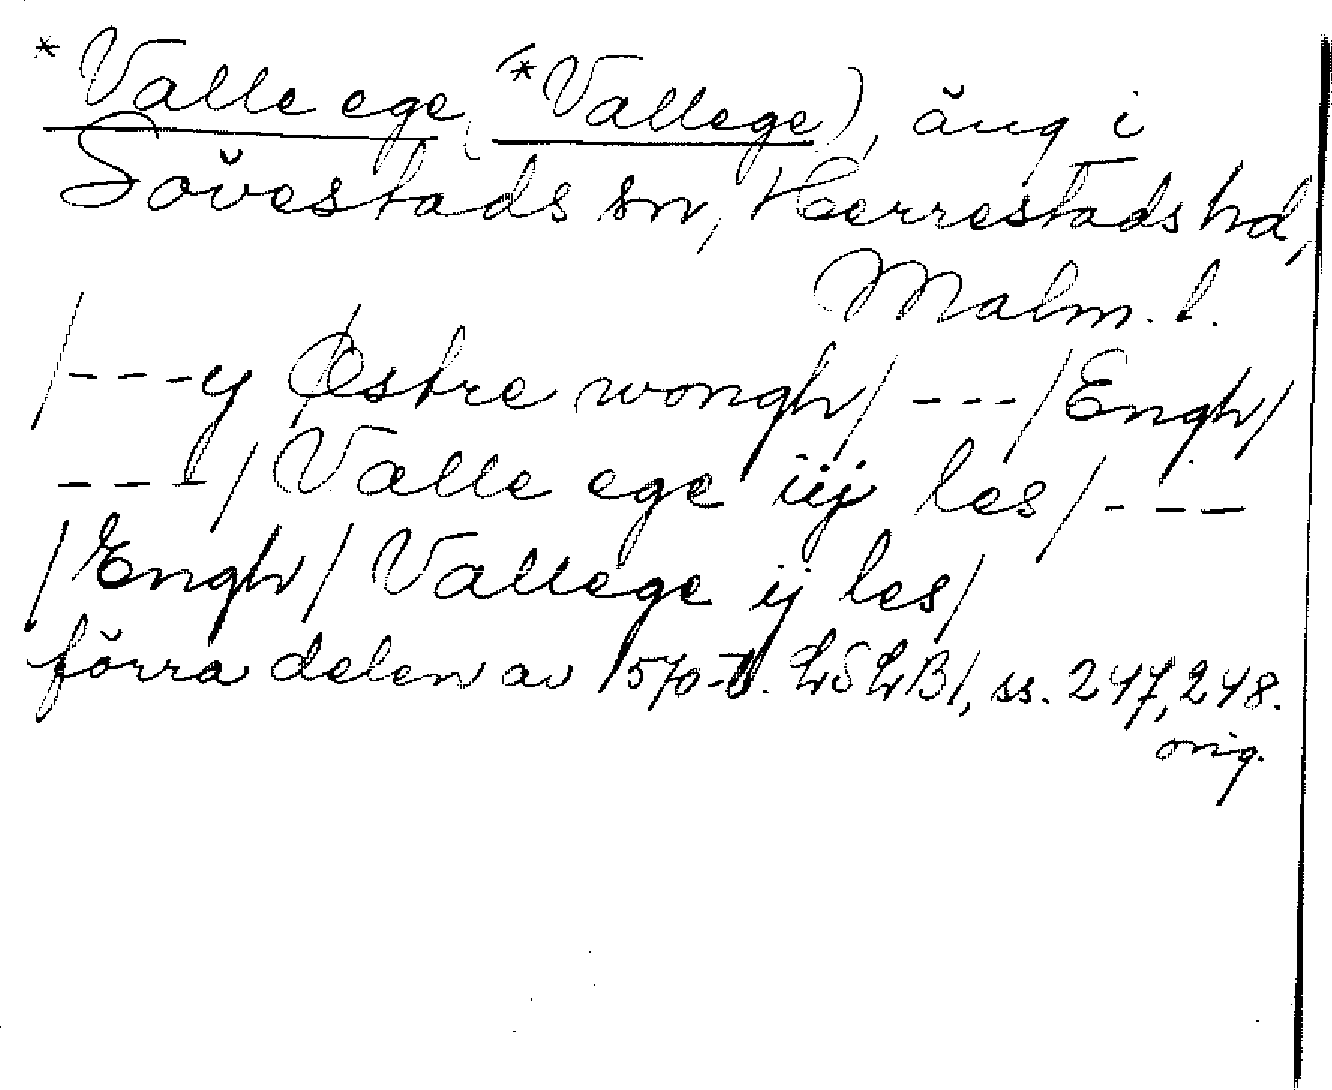 *Valle ege (*Vallege), äng i
Sövestads sn, Herrestads hd,
Malm. l.
/---y Østre wongh/ ---/Engh/
---/ Valle ege iij les/---
/Engh/ Vallege ij les/
förra delen av 1570-t. LSLB1, ss. 247, 248.
orig.